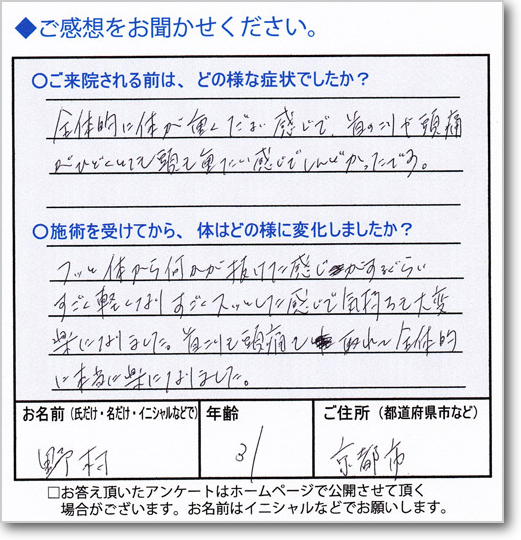 ◆ご感想をお聞かせください。
○ご来院される前は、どの様な症状でしたか？
全体的に体が重くだるい感じで、首のこりや頭痛
がひどくいても頭も重たい感じでしんどかったです。
○施術を受けてから、体はどの様に変化しましたか？
フッと体から何かが抜けた感じがするぐらい
すごく軽くなりすごくスッとした感じで気持ちも大変
楽になりました。首こりも頭痛も取れて全体的
に本当に楽になりました。
お名前（氏だけ・名だけ・イニシャルなどで） 年齢 ご住所（都道府県市など）
野村 31 京都市
□お答え頂いたアンケートはホームページで公開させて頂く
場合がございます。お名前はイニシャルなどでお願いします。